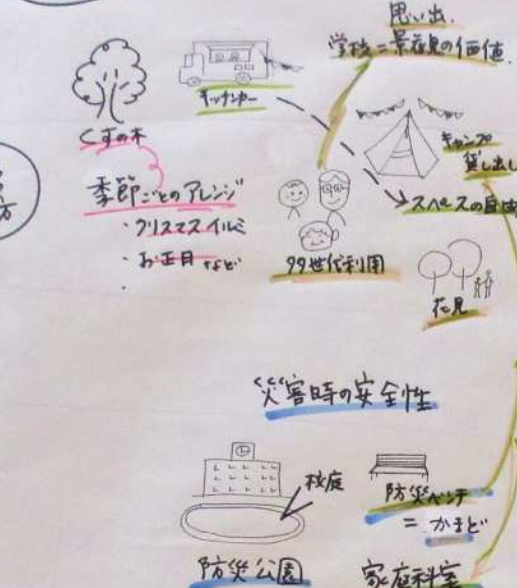 思い出.
学校=景観の価値.
キッチンカー
くすの木
キャンプ
貸し出し
季節ごとのアレンジ
・クリスマスイルミ
・お正月 など
・
スペースの自由
多世代利用
花見
災害時の安全性
校庭
防災ベンチ
= かまど
防災公園
家庭科室
方